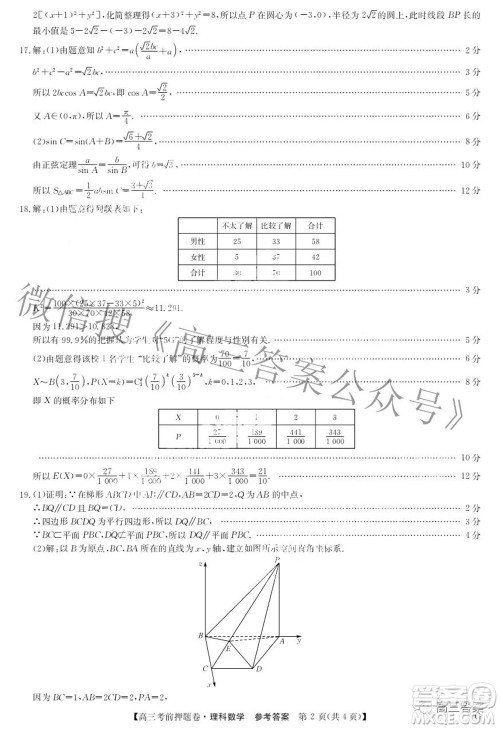 2[(x+1)²+y²],化简整理得(x+3)²+y²=8,所以点P在圆心为(-3,0),半径为2√2的圆上,此时线段BP长的
最小值是5-2√2=8-4√2.
17.解:(1)由题意知b²+c²=a(√2bc/a+a) 2分
b²+c²-a²=√2bc, 3分
所以2bccos A=√2bc,cos A=√2/2, 5分
又A∈(0,π),所以A=π/4. 6分
(2)sin C=sin(A+B)=(√6+√2)/4, 8分
由正弦定理a/sin A=b/sin B, 10分
所以S△ABC=1/2 absin C=(3+√3)/4. 12分
18.解:(1)由题意得列联表如下:
不太了解 比较了解 合计
男性 25 33 58
女性 5 37 42
合计 30 70 100
3分
K²=100×(25×37-33×5)²/(30×70×42×58)≈11.291,
因为11.291>10.828,
所以有99.9%的把握认为学生对 了解程度与性别有关. 5分
(2)由题意得该校1名学生“比较了解”的概率为70/100=7/10, 6分
X~B(3,7/10),P(X=k)=C₃ᵏ(7/10)ᵏ(3/10)³⁻ᵏ,k=0,1,2,3. 8分
即X的概率分布如下
X 0 1 2 3
P 27/1 000 189/1 000 441/1 000 343/1 000
10分
所以E(X)=0×27/1 000+1×189/1 000+2×441/1 000+3×343/1 000=21/10. 12分
19.(1)证明:∵在梯形ABCD中AB=2CD=2,Q为AB的中点,
∴BQ∥CD且BQ=CD, 2分
∴四边形BCDQ为平行四边形,∴DQ∥BC, 3分
∵BC⊂平面PBC,DQ⊄平面PBC,∴DQ∥平面PBC. 4分
(2)解:以B为原点,BC,BA所在的直线为x,y轴,建立如图所示空间直角坐标系,
z
P
B
A
y
E
C
D
x
因为BC=1,AB=2CD=2,
【高三考前押题卷·理科数学 参考答案 第2页(共4页)】
微信搜《高三答案公众号》
高三答案